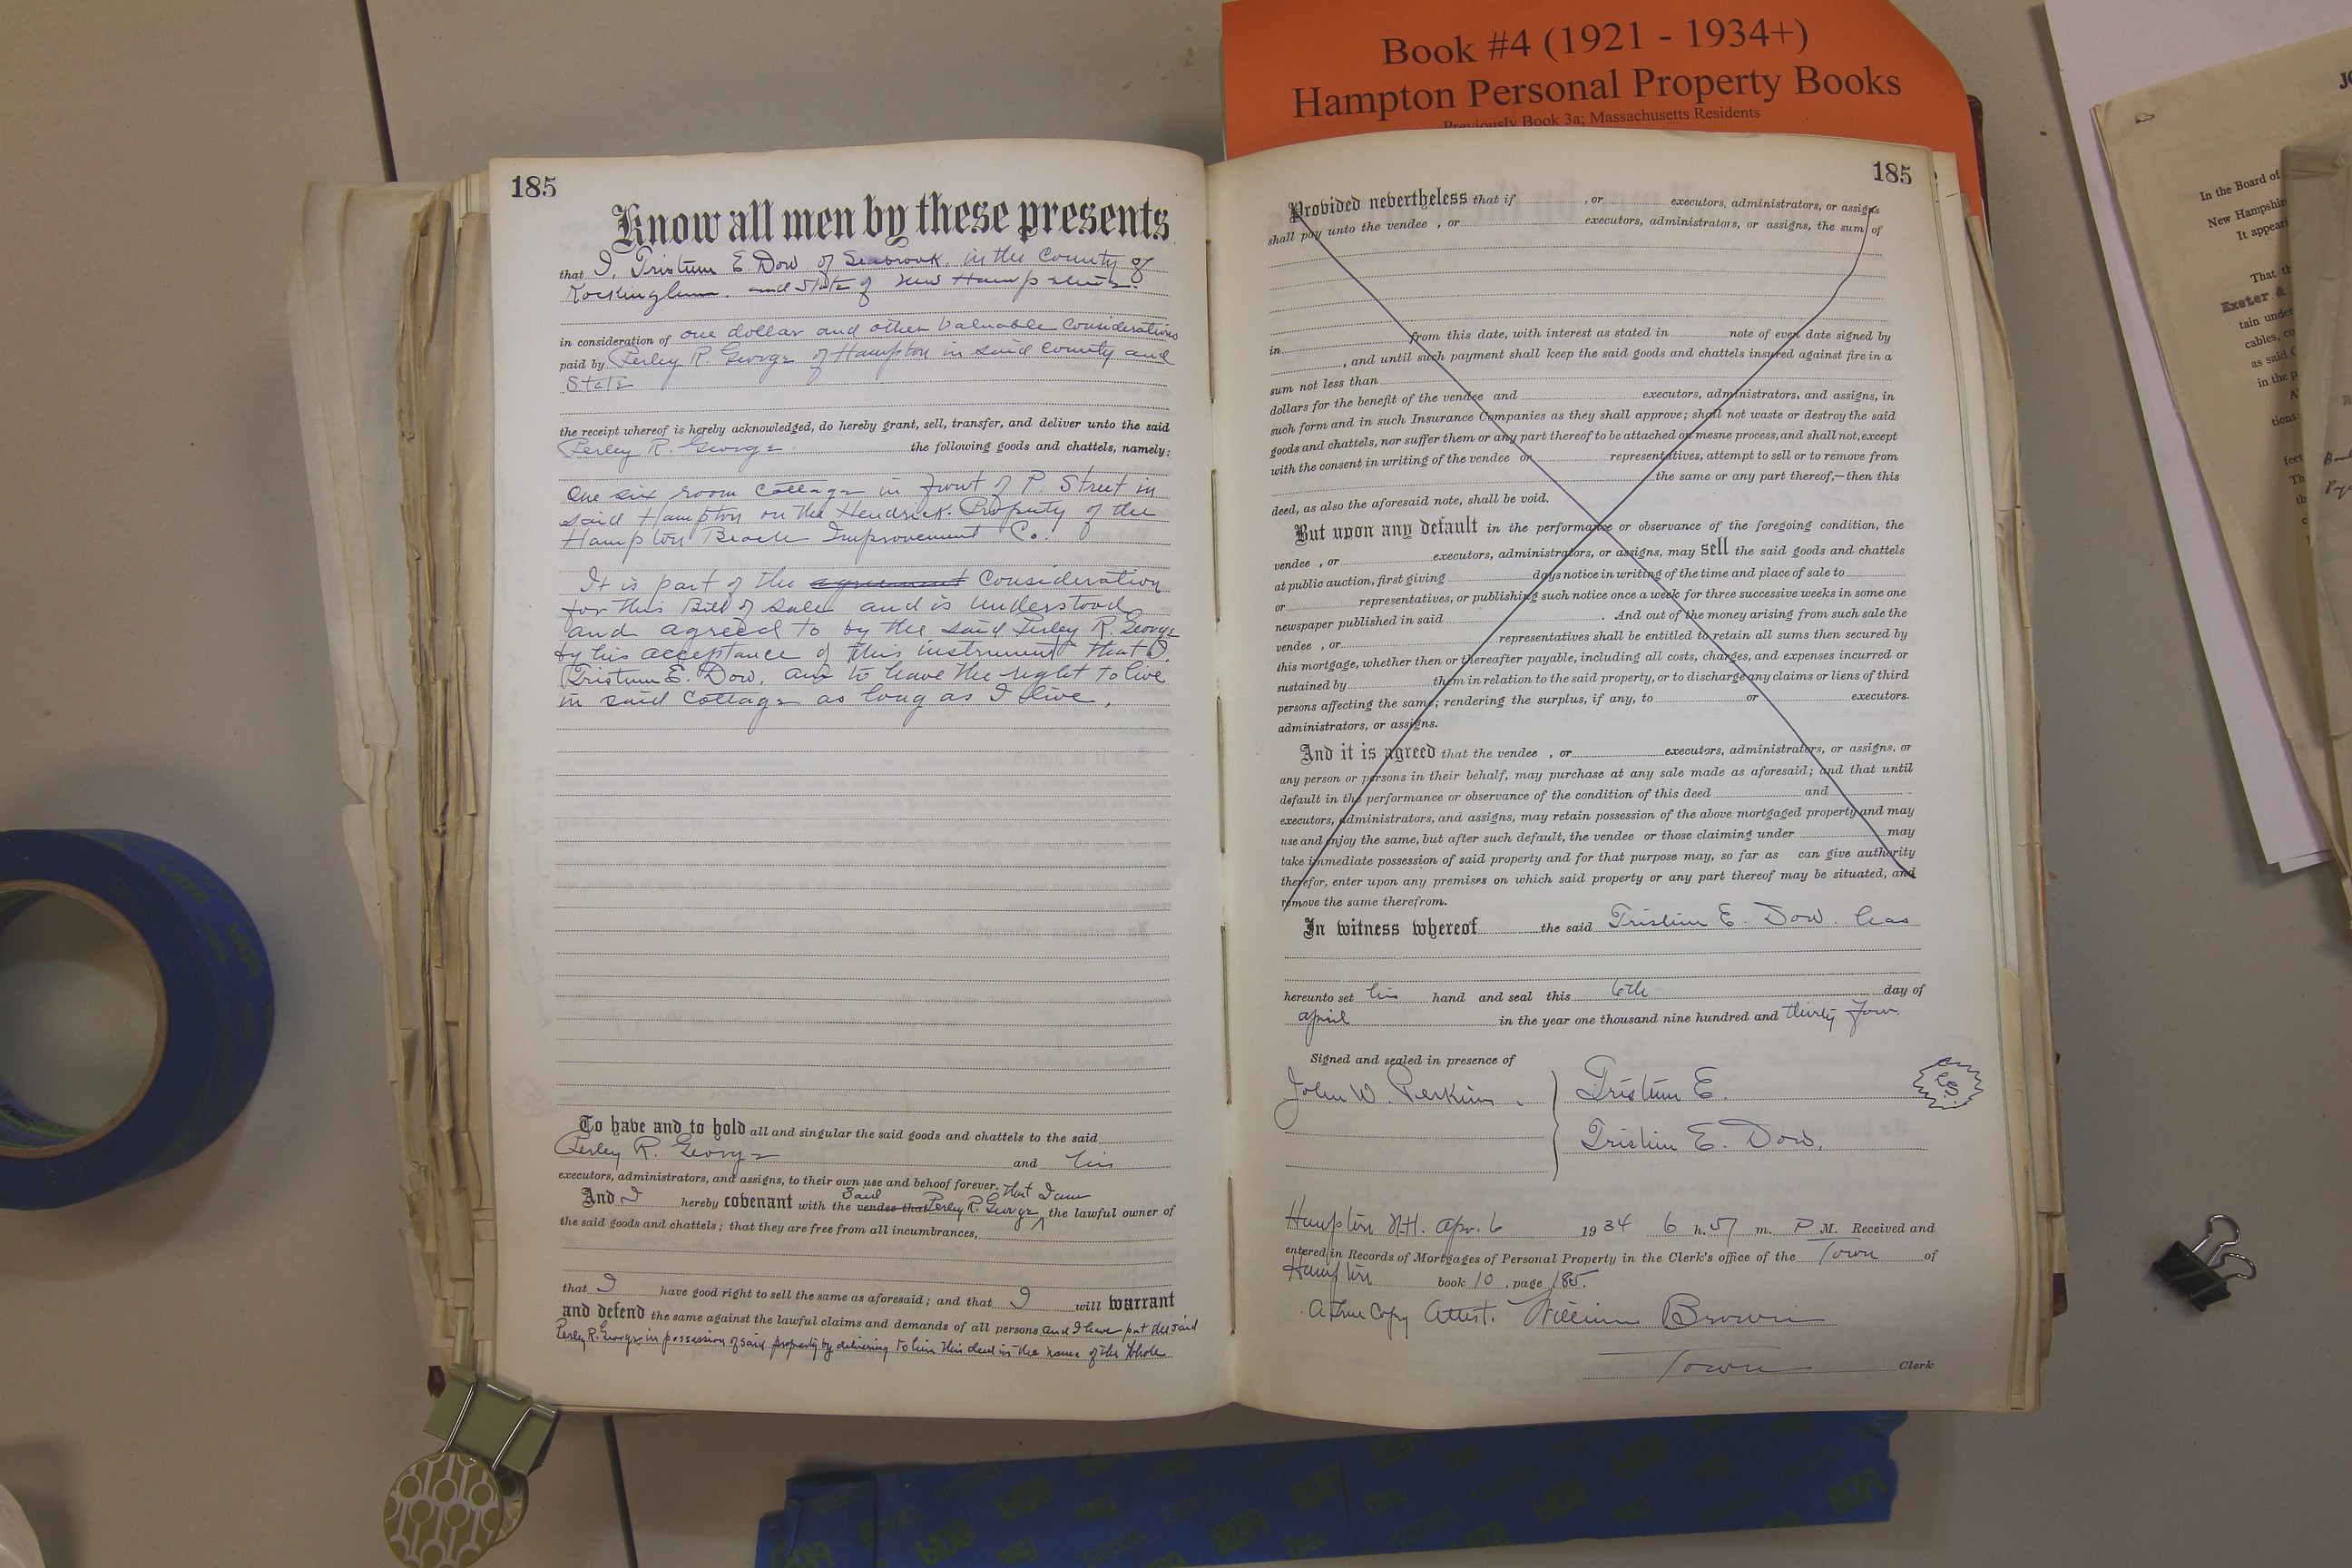 Book #4 (1921 - 1934+)
Hampton Personal Property Books
Previously Book 3a; Massachusetts Residents
185
Know all men by these presents
that I, Tristum E. Dow of Seabrook, in the County of
Rockingham. and State of New Hampshire.
in consideration of one dollar and other Valuable Considerations
paid by Perley R. George of Hampton in said County and
State
the receipt whereof is hereby acknowledged, do hereby grant, sell, transfer, and deliver unto the said
Perley R. George. the following goods and chattels, namely:
One six room Cottage in front of P. Street in
said Hampton on the Hendrick Property of the
Hampton Beach Improvement Co.
It is part of the agreement Consideration
for this Bill of Sale and is understood
and agreed to by the said Perley R. George
by his acceptance of this instrument that I,
Tristum E. Dow, am to have the right to live
in said Cottage as long as I live.
To have and to hold all and singular the said goods and chattels to the said
Perley R. George and his
executors, administrators, and assigns, to their own use and behoof forever.
Said that I am
And I hereby covenant with the vendee that Perley R. George the lawful owner of
the said goods and chattels; that they are free from all incumbrances,
that I have good right to sell the same as aforesaid; and that I will warrant
and defend the same against the lawful claims and demands of all persons and I have put the said
Perley R. George in possession of said property by delivering to him this deed in the name of the whole
185
Provided nevertheless that if , or executors, administrators, or assigns
shall pay unto the vendee , or executors, administrators, or assigns, the sum of
in from this date, with interest as stated in note of even date signed by
, and until such payment shall keep the said goods and chattels insured against fire in a
sum not less than
dollars for the benefit of the vendee and executors, administrators, and assigns, in
such form and in such Insurance Companies as they shall approve; shall not waste or destroy the said
goods and chattels, nor suffer them or any part thereof to be attached on mesne process, and shall not, except
with the consent in writing of the vendee or representatives, attempt to sell or to remove from
the same or any part thereof,—then this
deed, as also the aforesaid note, shall be void.
But upon any default in the performance or observance of the foregoing condition, the
vendee , or executors, administrators, or assigns, may sell the said goods and chattels
at public auction, first giving days notice in writing of the time and place of sale to
or representatives, or publishing such notice once a week for three successive weeks in some one
newspaper published in said . And out of the money arising from such sale the
vendee , or representatives shall be entitled to retain all sums then secured by
this mortgage, whether then or thereafter payable, including all costs, charges, and expenses incurred or
sustained by them in relation to the said property, or to discharge any claims or liens of third
persons affecting the same; rendering the surplus, if any, to or executors.
administrators, or assigns.
And it is agreed that the vendee , or executors, administrators, or assigns, or
any person or persons in their behalf, may purchase at any sale made as aforesaid; and that until
default in the performance or observance of the condition of this deed and
executors, administrators, and assigns, may retain possession of the above mortgaged property and may
use and enjoy the same, but after such default, the vendee or those claiming under may
take immediate possession of said property and for that purpose may, so far as can give authority
therefor, enter upon any premises on which said property or any part thereof may be situated, and
remove the same therefrom.
In witness whereof the said Tristum E. Dow. has
hereunto set his hand and seal this 6th day of
April in the year one thousand nine hundred and thirty four.
Signed and sealed in presence of
John W. Perkins. Tristum E. LS
Tristum E. Dow.
Hampton N.H. Apr. 6 1934 6 h. 57 m. P M. Received and
entered in Records of Mortgages of Personal Property in the Clerk's office of the Town of
Hampton book 10. page 185.
A true Copy Attest. William Brown
Town Clerk
In the Board of
New Hampshire
It appeari
That th
Exeter &
tain under
cables, co
as said C
in the p
tions:
feet